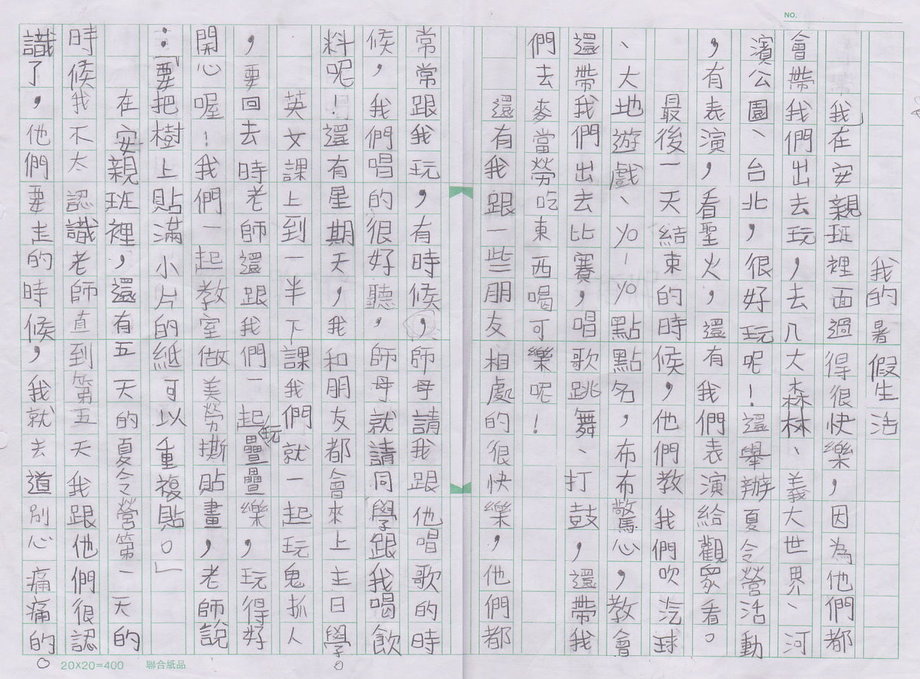 NO.
我的暑假生活
我在安親班裡面過得很快樂，因為他們都
會帶我們出去玩，去八大森林、義大世界、河
濱公園、台北，很好玩呢！還舉辦夏令營活動
，有表演，看聖火，還有我們表演給觀眾看。
最後一天結束的時候，他們教我們吹汽球
、大地遊戲、yo-yo點點名，布布驚心，教會
還帶我們出去比賽，唱歌跳舞、打鼓，還帶我
們去麥當勞吃東西喝可樂呢！
還有我跟一些朋友相處的很快樂，他們都
常常跟我玩，有時候，師母請我跟他唱歌的時
候，我們唱的很好聽，師母就請同學跟我喝飲
料呢！還有星期天，我和朋友都會來上主日學。
英文課上到一半下課我們就一起玩鬼抓人
，要回去時老師還跟我們一起玩疊疊樂，玩得好
開心喔！我們一起教室做美勞撕貼畫，老師說
：「要把樹上貼滿小片的紙可以重複貼。」
在安親班裡，還有五天的夏令營第一天的
時候我不太認識老師直到第五天我跟他們很認
識了，他們要走的時候，我就去道別心痛痛的。
20X20=400 聯合紙品